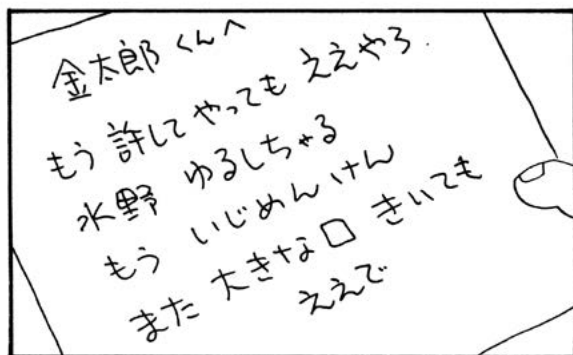 金太郎くんへ
もう許してやってもええやろ.
水野 ゆるしちゃる
もう いじめんけん
また 大きな口 きいても
ええで